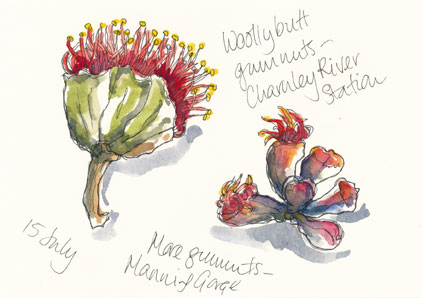 Woollybutt
gumnuts –
Charnley River
Station
15 July
More gumnuts –
Manning Gorge